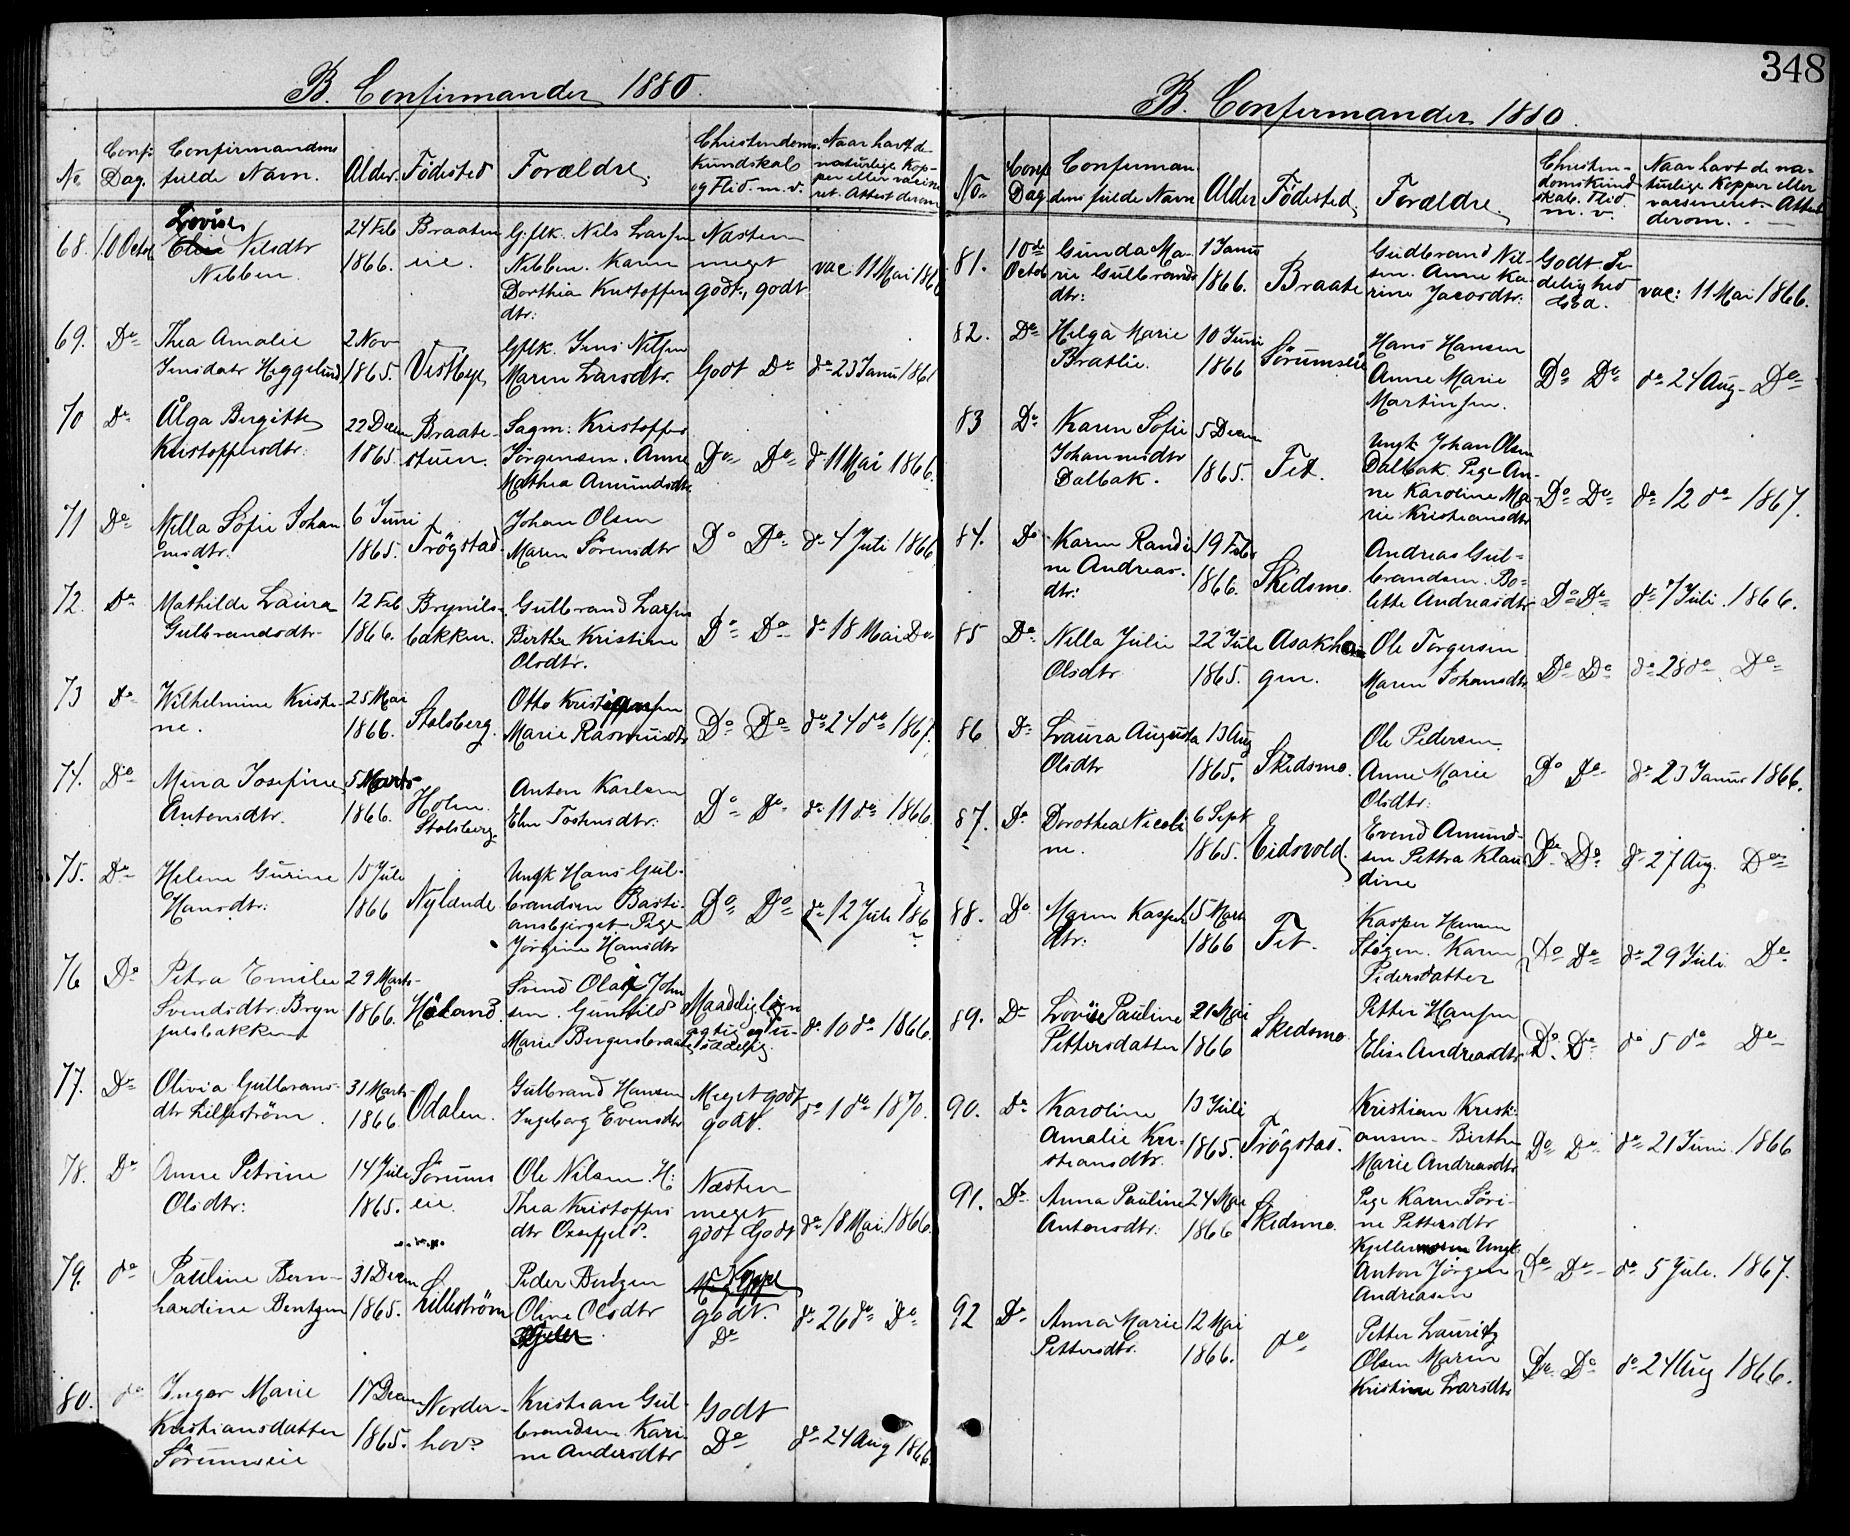 348
B. Confirmander 1880.
No.
Conf:
Dag.
Confirmandens
fulde Navn.
Alder.
Fødested
Forældre.
Christendoms-
kundskab
og Flid. m. v.
Naar havt de
naturlige Kop-
per eller vaccine
ret. Attest derom
68.
10 Octob
Lovise
Nilsdtr
Nibben.
24 Feb
1866.
Braaten
eie.
G: flk. Nils Larsen
Nibben. Karen
Dorthia Kristoffers
dtr:
Næsten
meget
godt, godt
vac 11 Mai 1866
69.
Do
Thea Amalie
Jensdatr Heggelund
2 Nov
1865.
Vestbye
Gflk. Jens Nilsen
Maren Larsdtr.
Godt Do
do 23 Janu 1861
70
Do
Alga Birgitte
Kristoffersdtr.
22 Decem
1865.
Braate-
stuen.
Sagm: Kristoffer
Jørgensen. Anne
Mathea Amundsdtr
Do Do
do 11 Mai 1866.
71
Do
Nilla Sofie Johan
nesdtr.
6 Juni
1865.
Trøgstad.
Johan Olsen
Maren Sørensdtr
Do Do
do 4 Juli 1866
72.
Do
Mathilde Laura
Gulbrandsdtr
12 Feb
1866.
Brynils-
bakken.
Gulbrand Larsen
Berthe Kristine
Olsdtr.
Do Do
do 18 Mai Do
73
Do
Wilhelmine Kristi-
ne.
25 Mai
1866.
Stalsberg.
Otto Kristiansen
Marie Rasmusdtr
Do Do
do 24 do 1867.
74.
Do
Mina Josefine
Antonsdtr.
5 Marts
1866.
Holm
Stalsberg
Anton Karlsen
Elen Tostensdtr.
Do Do
do 11 do 1866.
75.
Do
Helene Gurine
Hansdtr:
15 Juli
1866
Nylænde
Ungk Hans Gul-
brandsen Basti-
ansbjerget Pige
Jørgine Hansdtr
Do Do
do 12 Juli 186
76
Do
Petra Emilie
Svendsdtr. Bryn
julsbakken
29 Marts
1866.
Høland.
Svend Olaus John
sen. Gunhild
Marie Bergersbraate
Maadelig
agtig og u-
sædelig.
do 10 do 1866.
77.
Do
Olivia Gulbrands-
dtr Lillestrøm.
31 Marts
1866
Odalen.
Gulbrand Hansen
Ingeborg Evensdtr
Meget godt
godt.
do 1 do 1870.
78.
Do
Anne Petrine
Olsdtr:
14 Juli
1865.
Sørums
eie.
Ole Nilsen. H:
Thea Kristoffers
dtr Oxefjeld.
Næsten
meget
godt Godt
do 18 Mai 1866.
79.
do
Pauline Bern-
hardine Bentzen
31 Decem
1865.
Lillestrøm
Peder Bentzen
Oline Olsdtr
godt.
Do
do 26 do Do
80.
do
Inger Marie
Kristiansdatter
Sørumseie
17 Decem
1865.
Norder-
hov?
Kristian Gul-
brandsen Kari
ne Andersdtr
Godt
Do
do 24 Aug 1866.
B. Confirmander 1880.
No.
Conf
Dag
Confirman
dens fulde Navn
Alder
Fødested
Forældre.
Christen-
domskund
skab. Flid.
m. v.
Naar havt de na-
turlige Kopper eller
vaccineret. Attest
derom. —
81.
10de
Octob
Gunda Ma-
rie Gulbrands
dtr:
1 Janu
1866.
Braate
Gudbrand Nil-
sen. Anne Ka-
rine Jacobdtr.
Godt. Se-
delighed
God.
vac: 11 Mai 1866.
82.
Do
Helga Marie
Bratlie.
10 Juni
1866
Sørumseie
Hans Hansen
Anne Marie
Martinsen.
Do Do
do 24 Aug. Do
83
Do
Karen Sofie
Johannesdtr
Dalbak.
5 Decem
1865.
Fet.
Ungk. Johan Olsen
Dalbak. Pige An-
ne Karoline Ma-
rie Kristiansdtr
Do Do
do 12 do 1867.
84.
Do
Karen Randi
ne Andreas-
dtr:
19 Feb.
1866.
Skedsmo.
Andreas Gul-
brandsen. Bo-
lette Andreasdtr
Do Do
do 7 Juli. 1866.
85
Do
Nilla Julie
Olsdtr
22 Juli
1865.
Asakha
gen.
Ole Torgersen
Maren Johansdtr
Do Do
do 28 do Do
86
Do
Laura Augusta
Olsdtr
13 Aug
1865.
Skedsmo.
Ole Pedersen.
Anne Marie
Olsdtr:
Do Do
do 23 Janur 1866.
87.
Do
Dorothea Nicoli
ne.
6 Sept
1865.
Eidsvold.
Evend Amund-
sen Pettra Klau
dine
Do Do
do 27 Aug. Do
88.
Do
Maren Kasper
dtr:
15 Mart
1866
Fet.
Kasper Hansen
Karen
Pedersdatter
Do Do
do 29 Juli Do
89.
Do
Lovise Pauline
Pettersdatter
21 Mai
1866
Skedsmo
Petter Hansen
Elise Andreasdtr
Do Do
do 5 do Do
90.
Do
Karoline
Amalie Kri-
stiansdtr.
13 Juli
1865.
Trøgstad.
Kristian Kristi-
ansen- Birthe
Marie Andreasdtr
Do Do
do 21 Juni 1866
91.
Do
Anna Pauline
Antonsdtr:
24 Mai
1866
Skedsmo
Pige Karen Søri-
ne Pettersdtr
Ungk
Anton Jørgen
Andreasen
Do Do
do 5 Juli. 1867.
92
Do
Anna Marie
Pettersdtr.
12 Mai
1866.
do
Petter Lauritz
Olsen Maren
Kristine Larsdtr
Do. Do
do 24 Aug 1866.